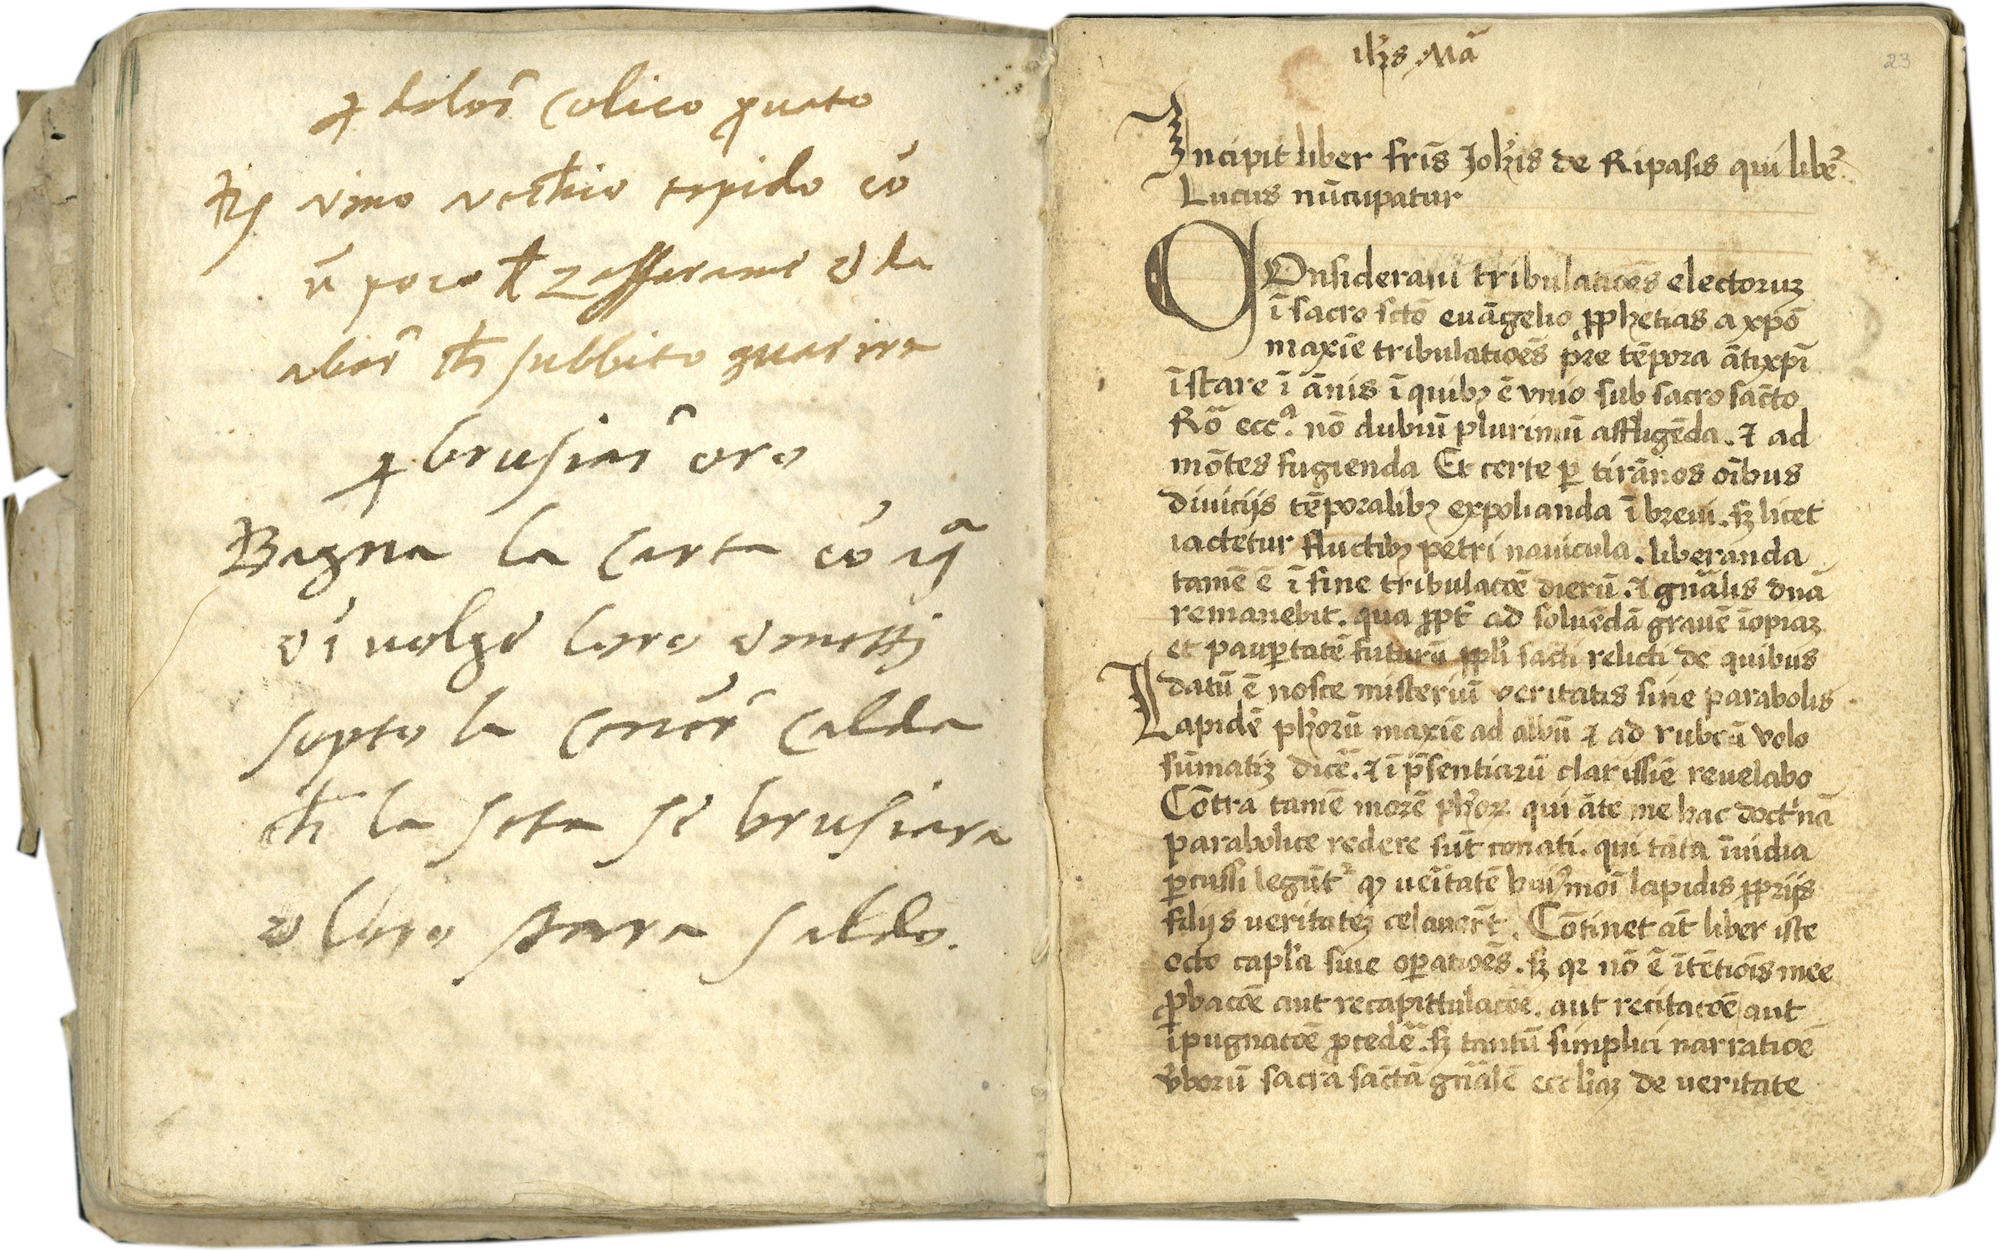 ꝑ dolor̄ colico ꝓuato
vino vecchio tepido cõ
ũ poco zafferano e da
aber̄ ch̄ subbito guarira
ꝑ brusiar̄ oro
Bagna la carta cõ
e i uolge loro e metti
sopto la cener̄ calda
ch̄ la seta se brusiara
e loro stara saldo.
ihs Mā
23
Incipit liber fris̄ Joh̄is de Ripasis qui libe᷒
Lucus nūcupatur
COnsideraui tribulatiões electoruꝫ
ī sacro scto euāgelio ꝓphetias a xpō
maxīe tribulatioēs pr̄e tēpora ātixpī
īstare ī ānis ī quibꝫ ē vnio sub sacro sācto
Rō eccᵃ. nō dubiū plurimū affligēda. ⁊ ad
mōtes fugienda Et certe ꝑ tirānos oībus
diuiciis tēporalibꝫ expolianda ī breui. sꝫ licet
iactetur fluctibꝫ petri nauicula. liberanda
tamē ē ī fine tribulacōe dierū. ⁊ gnālis dnā
remanebit. qua ꝓpt̄ ad soluēdā grauē īopiaꝫ
et paupertatē futurū ppl̄i sācti relicti de quibus
datū ē nosce misteriū veritatis sine parabolis
Lapidē ph̄orū maxīe ad albū ⁊ ad rubeū volo
sūmatiꝫ dicē. ⁊ ī pn̄sentiarū clarissīe reuelabo
Cōtra tamē morē ph̄oꝝ. qui āte me hac doct'nā
parabolice redere sūt conati. qui tāta īuidia
ꝑcussi legūt᷒ qꝫ ueitatē hui᷒moī lapidis ꝓpriis
filiis ueritateꝫ celauer̄t. Cōtinet āt liber iste
octo capl'a siue oꝑatioēs. sꝫ qꝛ nō ē ītētiōis mee
ꝓbacōe aut recapittulacōe. aut recitacōe aut
īpugnacōe ꝓcedē. sꝫ tantū simplici narratiōe
v̄borū sacra sāctā gnālē eccl'iaꝫ de veritate